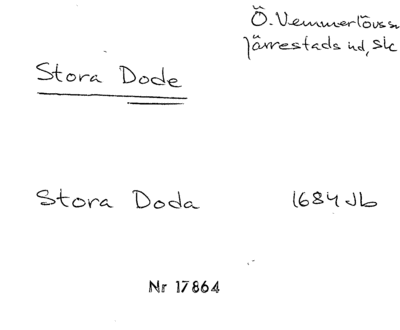 Ö. Vemmerlövs sn
Järrestads hd, Sk
Stora Dode
Stora Doda 1684 Jb
Nr 17864